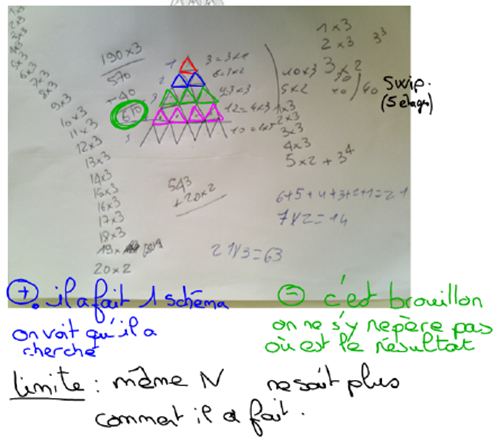 1 x 3
2 x 3
3 x 3
4 x 3
5 x 3
6 x 3
7 x 3
8 x 3
9 x 3
10 x 3
11 x 3
12 x 3
13 x 3
14 x 3
15 x 3
16 x 3
17 x 3
18 x 3
19 x
20 x 2
190 x 3
570
+40
1
2
3 = 3 x 1
12 = 4 x 3
543
+ 20 x 2
21 x 3 = 63
10 x 3
5 x 2
1 x 3
2 x 3
3 x 3
4 x 3
5 x 2 + 3⁴
1 x 3
2 x 3
3³
3 x 2
6+5+4+3+2+1=21
7 x 2 = 14
SWIP.
(5 étages)
+ . il a fait 1 schéma
on voit qu'il a
cherché
- c'est brouillon
on ne s'y repère pas
où est le résultat
limite : même N ne sait plus
comment il a fait.